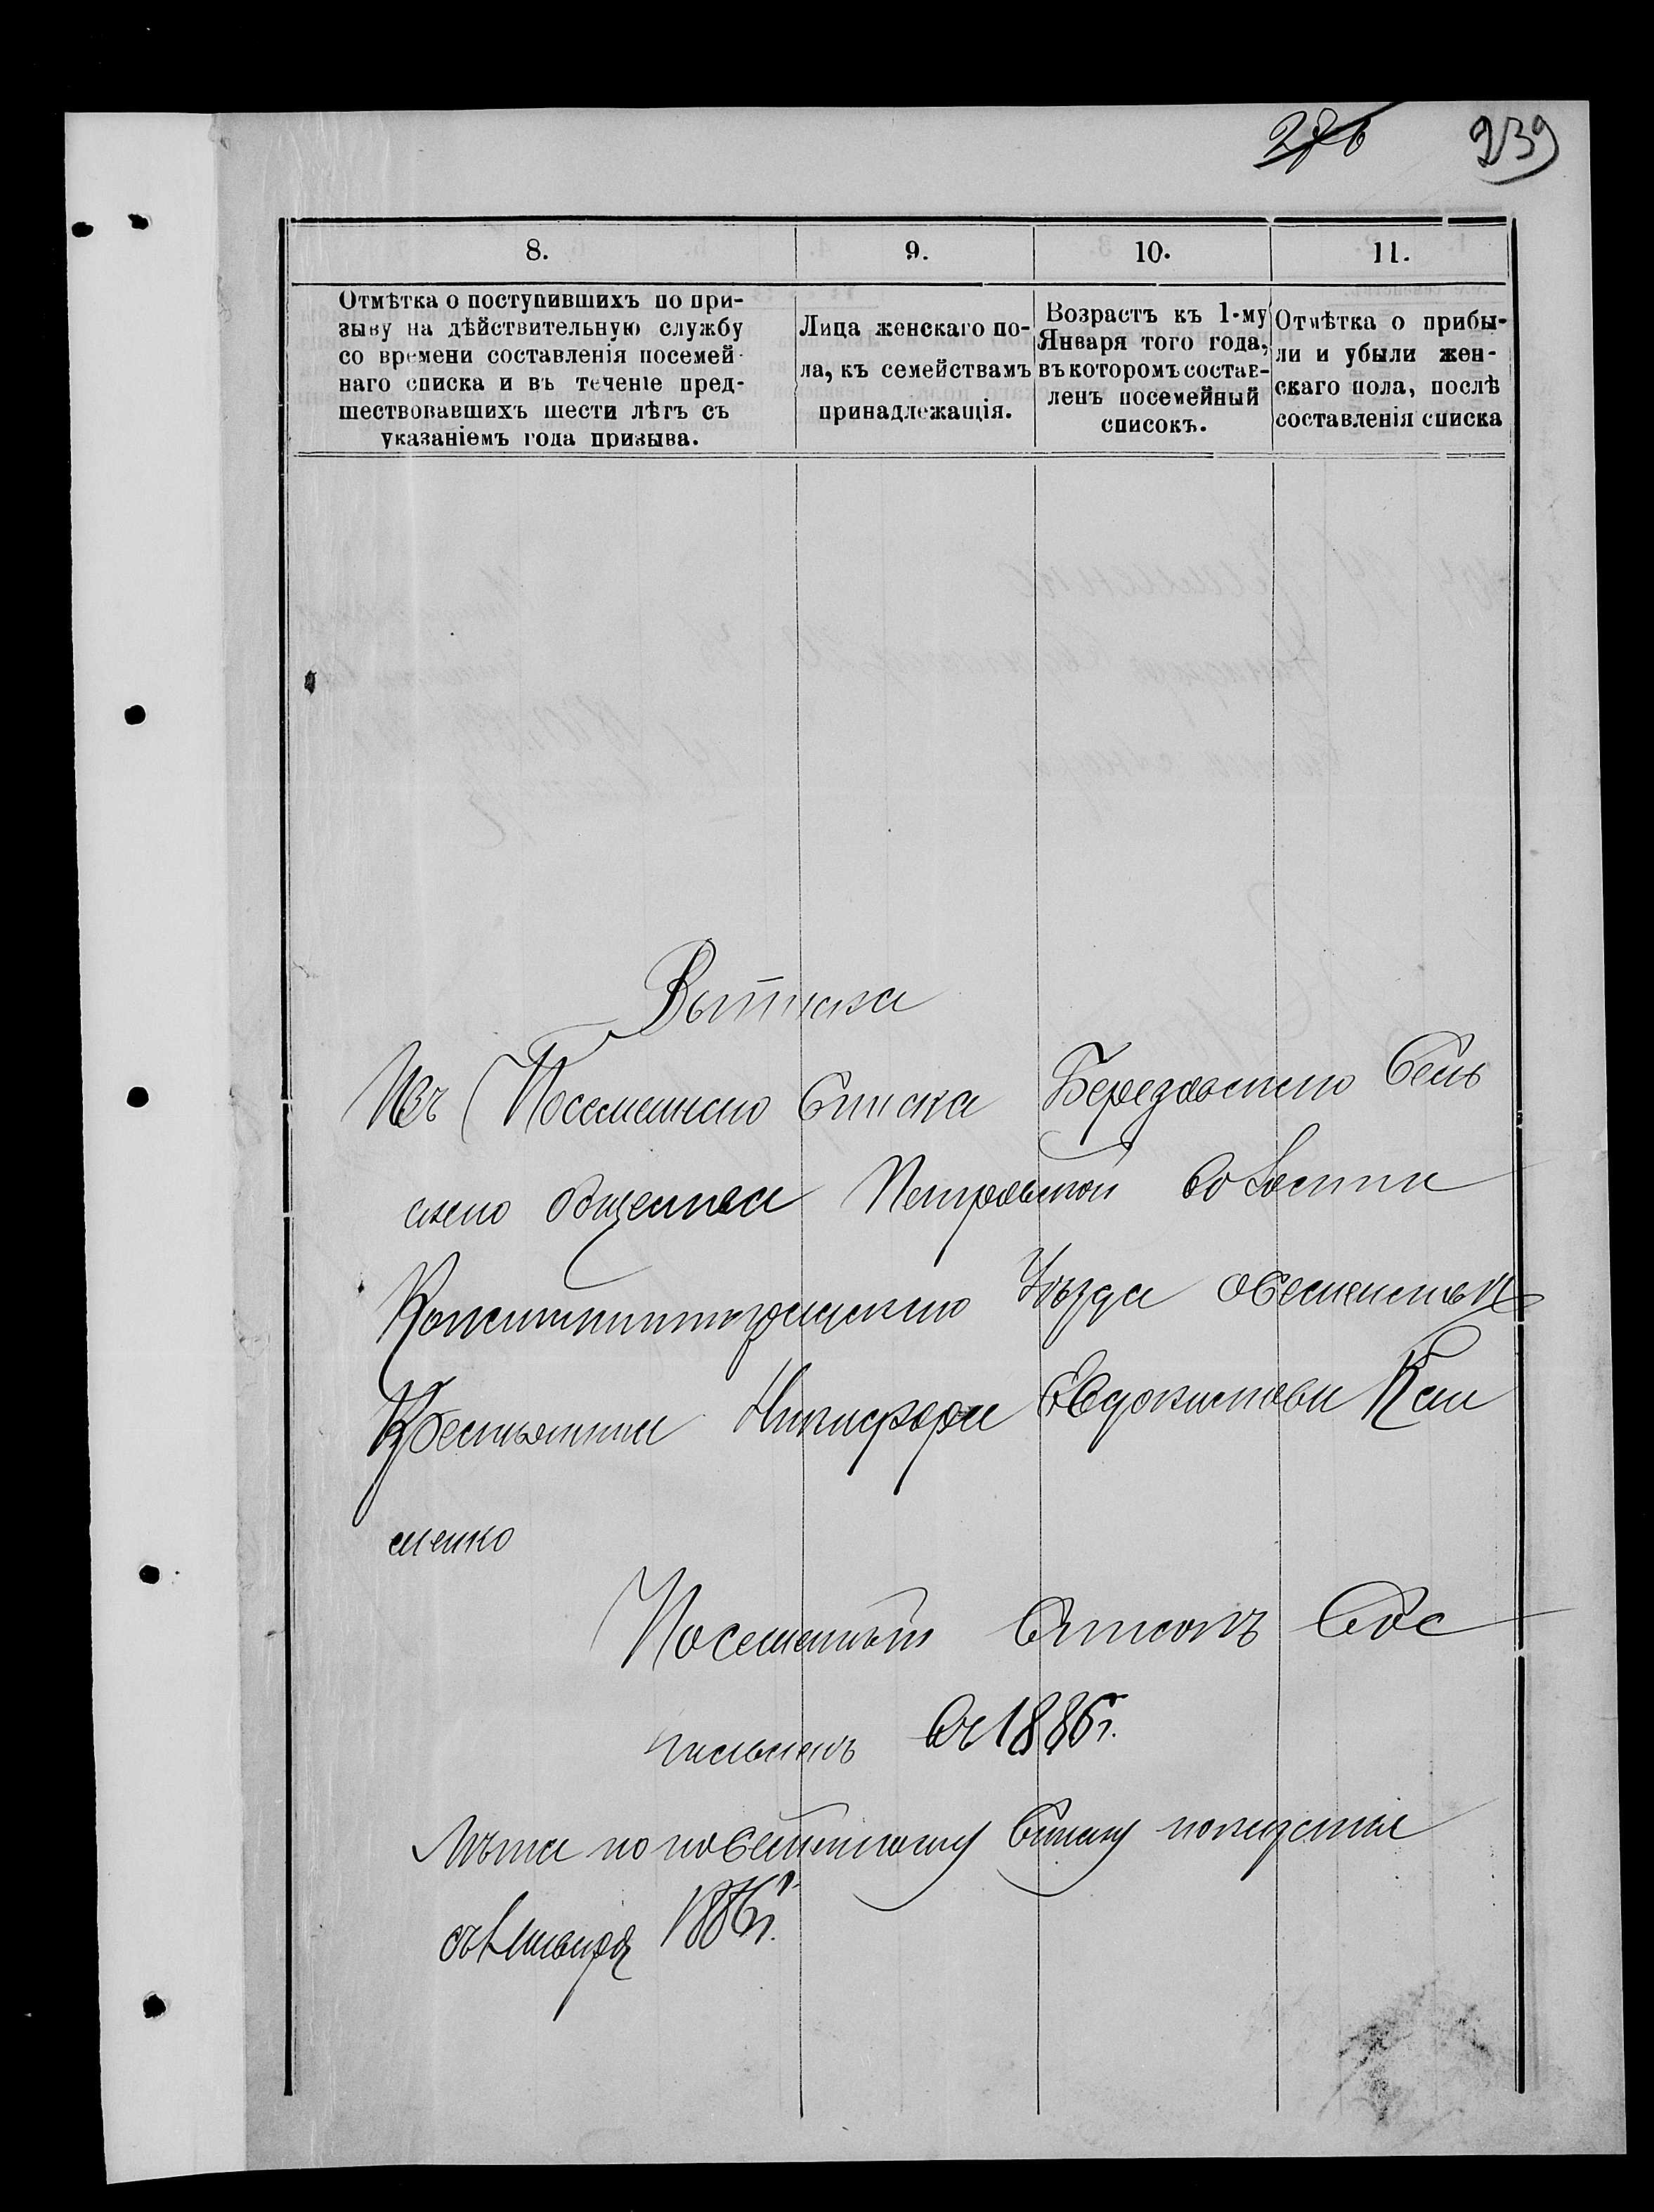 276 239
8. 9. 10. 11.
Отмѣтка о поступившихъ по при-
зыву на дѣйствительную службу
со времени составленія посемей-
наго списка и въ теченіе пред-
шествовавшихъ шести лѣтъ съ
указаніемъ года призыва.
Лица женскаго по-
ла, къ семействамъ
принадлежащія.
Возрастъ къ 1-му
Января того года,
въ которомъ состав-
ленъ посемейный
списокъ.
Отмѣтка о прибы-
ли и убыли жен-
скаго пола, послѣ
составленія списка
Выписка
Изъ Посемейнаго Списка Березовскаго Сель
скаго Общества Петровской Волости
Константиноградскаго Уѣзда о Семействѣ
Крестьянина Никифора Евдокимова Кли
менко
Посемейный Списокъ Сос
тавленъ въ 1886 г.
Лѣта по посемейному Списку показаны
съ 1 Января 1886 г.